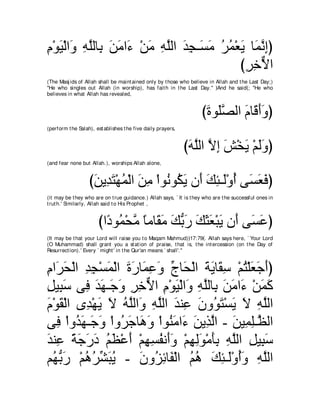 (إِنَّمَا يَعْمُرُ مَسَـجِدَ اللَّهِ مَنْ ءَامَنَ بِاللَّهِ وَالْيَوْمِ
الاٌّخِرِ)
(The Masjids of Allah shall be maintained only by those who believe in Allah and the Last Day;)
"He who singles out Allah (in worship), has faith in the Last Day." )And he said(; "He who
believes in what Allah has revealed,
(وَأَقَامَ الصَّلَوةَ)
(perform the Salah), establishes the five daily prayers,
(وَلَمْ يَخْشَ إِلاَّ اللَّهَ)
(and fear none but Allah.), worships Allah alone,
(فَعَسَى أُوْلَـئِكَ أَن يَكُونُواْ مِنَ الْمُهْتَدِينَ)
(It may be they who are on true guidance.) Allah says, `It is they who are the successful ones in
truth.' Similarly, Allah said to His Prophet ,
(عَسَى أَن يَبْعَثَكَ رَبُّكَ مَقَاماً مَّحْمُودًا)
(It may be that your Lord will raise you to Maqam Mahmud))17:79(. Allah says here, `Your Lord
(O Muhammad) shall grant you a station of praise, that is, the intercession (on the Day of
Resurrection).' Every `might' in the Qur'an means `shall'."
(أَجَعَلْتُمْ سِقَايَةَ الْحَاجِّ وَعِمَارَةَ الْمَسْجِدِ الْحَرَامِ
كَمَنْ ءَامَنَ بِاللَّهِ وَالْيَوْمِ الاٌّخِرِ وَجَـهَدَ فِى سَبِيلِ
اللَّهِ لاَ يَسْتَوُونَ عِندَ اللَّهِ وَاللَّهُ لاَ يَهْدِى الْقَوْمَ
الظَّـلِمِينَ - الَّذِينَ ءَامَنُواْ وَهَاجَرُواْ وَجَـهَدُواْ فِى
سَبِيلِ اللَّهِ بِأَمْوَلِهِمْ وَأَنفُسِهِمْ أَعْظَمُ دَرَجَةً عِندَ
اللَّهِ وَأُوْلَـئِكَ هُمُ الْفَائِزُونَ - يُبَشِّرُهُمْ رَبُّهُم